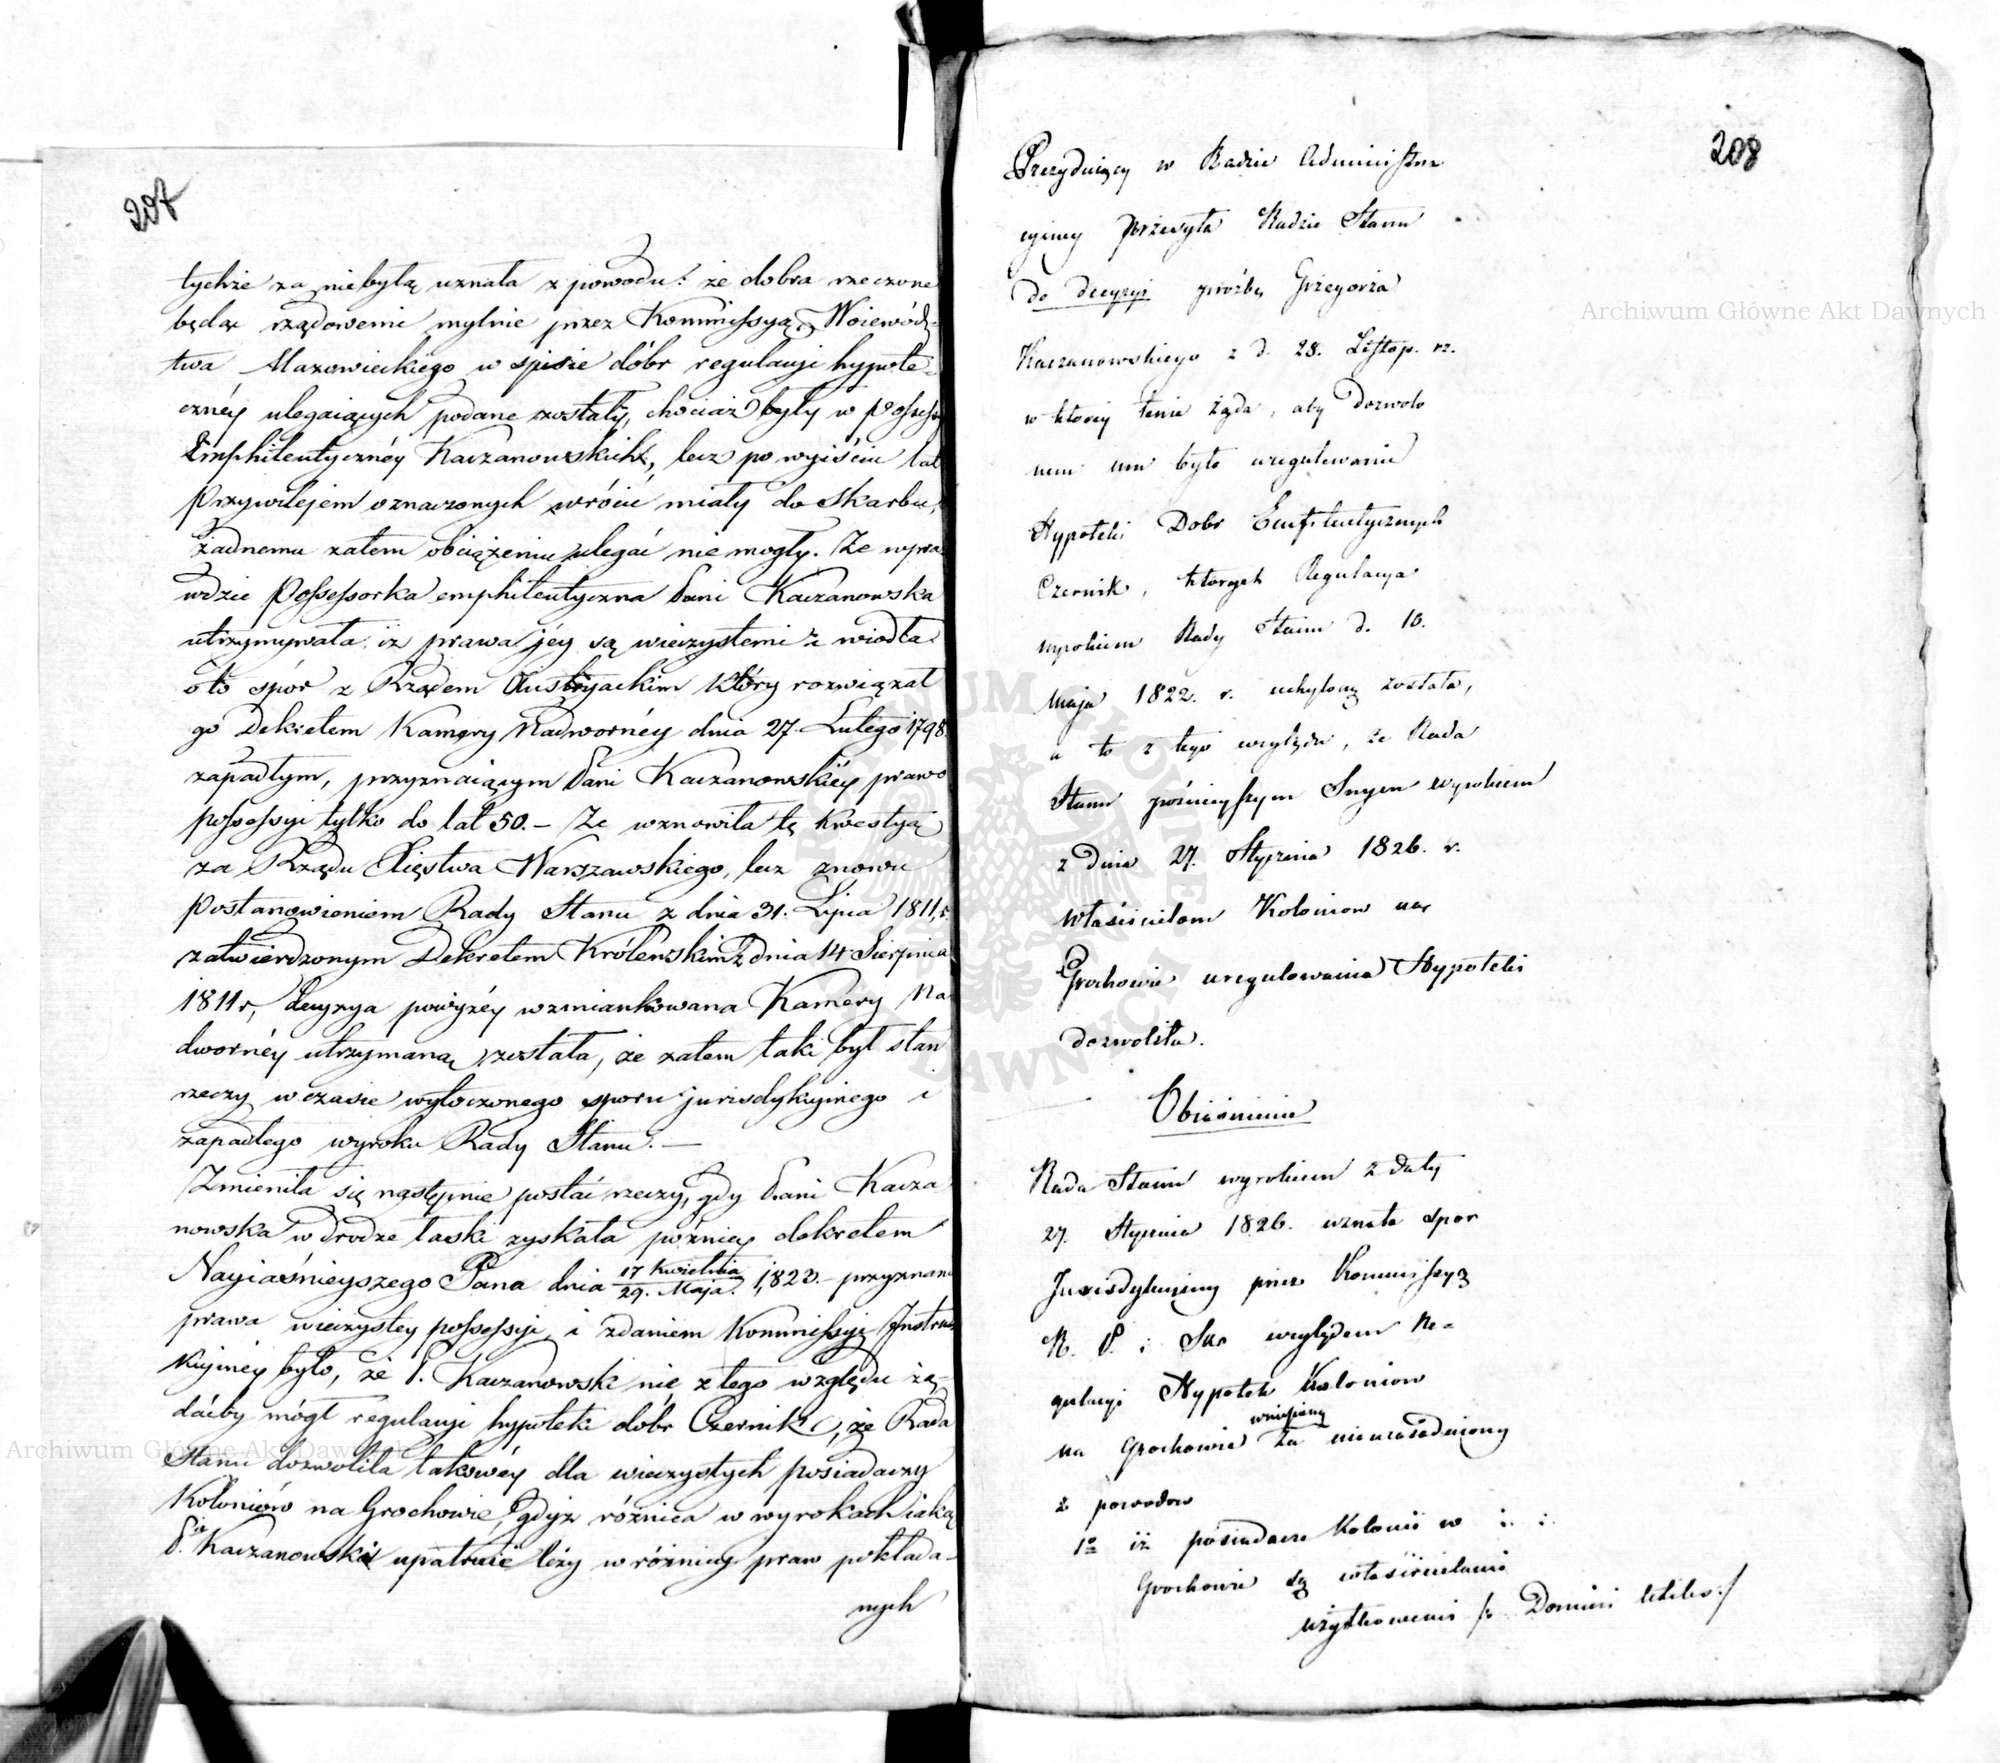 207
tychże za niebyłą uznała z powodu: że dobra rzeczone
będąc rządowemi mylnie przez Kommissyą Woiewódz-
twa Mazowieckiego w spisie dóbr regulacyi hypote-
cznéy ulegaiących podane zostały, chociaż były w Possessyi
Emphiteutycznéy Kaczanowskich, lecz po wyiściu lat
Przywilejem oznaczonych wrócić miały do Skarbu,
żadnemu zatem obciążeniu ulegać nie mogły. Że wpra-
wdzie Possessorka emphiteutyczna Pani Kaczanowska
utrzymywała iż prawa jéy są wieczystemi i wiodła
o to spór z Rządem Austryackim który rozwiązał
go Dekretem Kamery Nadwornéy dnia 27. Lutego 1798
zapadłym, przyznaiącym Pani Kaczanowskiéy prawo
possessyi tylko do lat 50. – Że wznowiła tę kwestyą
za Rządu Xięstwa Warszawskiego, lecz znowu
Postanowieniem Rady Stanu z dnia 31. Lipca 1811. r.
zatwierdzonym Dekretem Królewskim z dnia 14 Sierpnia
1811 r, decyzya powyżéy wzmiankowana Kamery Na-
dwornéy utrzymaną została, że zatem taki był stan
rzeczy w czasie wytoczonego sporu jurisdykcyinego i
zapadłego wyroku Rady Stanu. —
Zmieniła się następnie postać rzeczy, gdy Pani Kacza
nowska w drodze łaski zyskała poźniey dekretem
Nayiaśnieyszego Pana dnia 17 Kwietnia / 29. Maja 1823. – przyznanie
prawa wieczystey possessyi i zdaniem Kommissyi Instruk
kcyinéy było, że P. Kaczanowski nie z tego względu żą-
daćby mógł regulacyi hypoteki dóbr Czernik, że Rada
Stanu dozwoliła takowéy dla wieczystych posiadaczy
Koloniów na Grochowie, gdyż różnica w wyrokach iaką
P. Kaczanowski upatruie leży w różnicy praw pokłada-
nych
208
Prezyduiący w Radzie Administra
cyiney przesyła Radzie Stanu
do decyzyi prośbę Grzegorza
Kaczanowskiego z d. 28. Listop. rz.
w ktorey tenże żąda, aby dozwolo
nem mu było uregulowanie
Hypoteki Dobr Emfiteutycznych
Czernik, ktorych Regulacya
wyrokiem Rady Stanu d. 10.
Maja 1822. r. uchyloną została,
a to z tego względu, że Rada
Stanu poźnieyszym Swym wyrokiem
z dnia 27. Stycznia 1826. r.
właścicielom Koloniow na
Grochowie uregulowania Hypoteki
dozwoliła.
Obiaśnienie
Rada Stanu wyrokiem z daty
27. Stycznia 1826. uznała spor
Jurisdykcyiny przez Kommissyą
R. P. i Skr względem Re-
gulacyi Hypotek Koloniow
na Grochowie wniesiony za nieuzasadniony
z powodow
1o iż posiadacze Kolonii w
Grochowie są właścicielami
użytkowemi /: Domini utiles :/
Archiwum Główne Akt Dawnych
Archiwum Główne Akt Dawnych